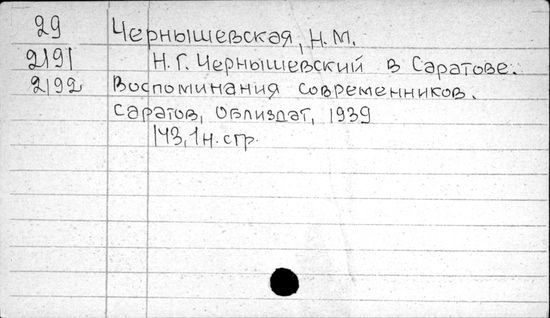 29 Чернышевская, Н.М.
2191 Н.Г. Чернышевский в Саратове.
2192 Воспоминания современников.
Саратов, Облиздат, 1939
143, 1 н. стр.